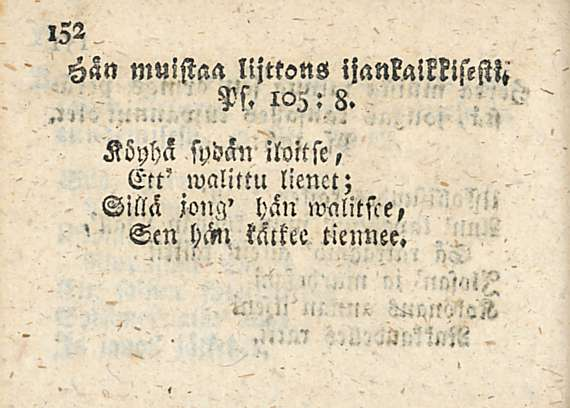 152
Hän muistaa lijttons ijankaikkisesti.
Ps. 105: 8.
Köyhä sydän iloitse,
Ett' walittu lienet;
Sillä jong' hän walitsee,
Sen hän kätkee tiennee.